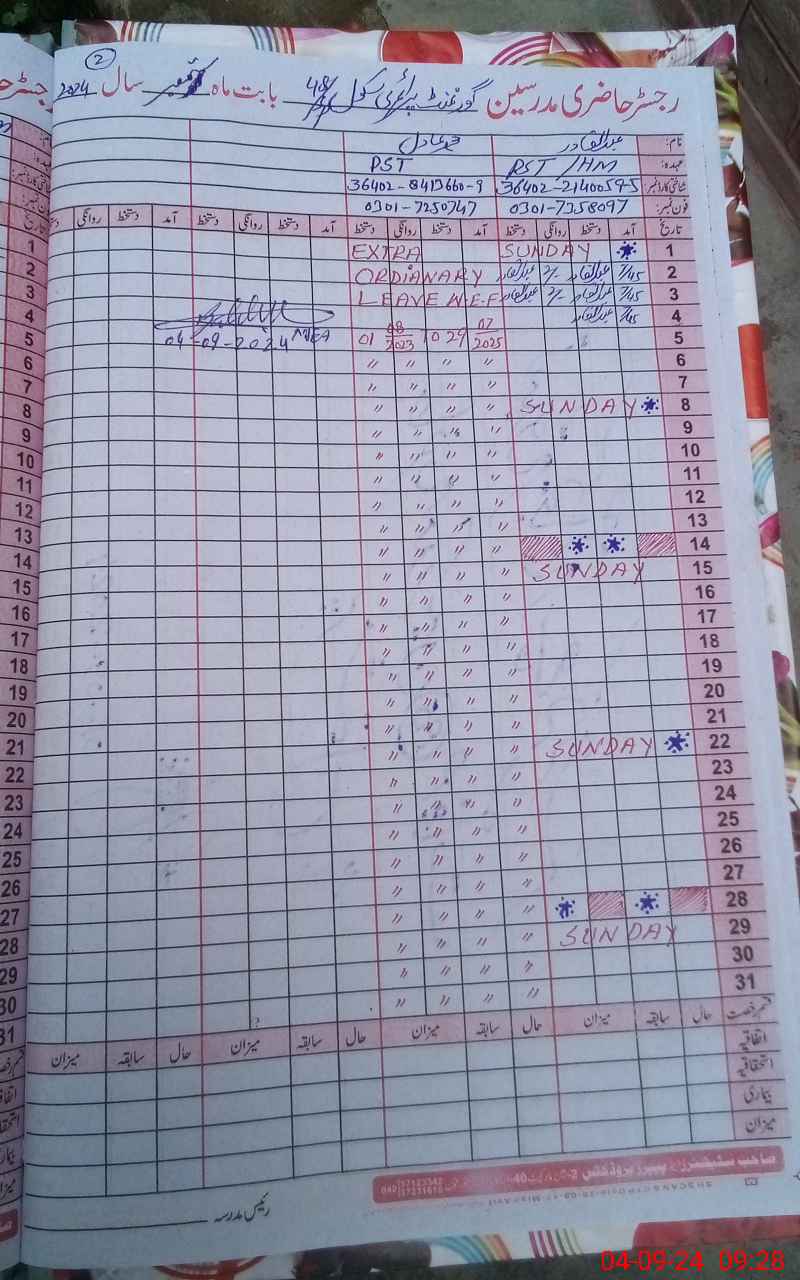 2
رجسٹر حاضری مدرسین گورنمنٹ پرائمری سکول 48 بابت ماہ ستمبر سال 2024
نام: عبدالقادر عادل
عہدہ: PST/HM PST
شناختی کارڈ نمبر: 36402-2140059-5 36402-8413660-9
فون نمبر: 0301-7358097 0301-7250747
تاریخ آمد دستخط روانگی دستخط آمد دستخط روانگی دستخط آمد دستخط روانگی دستخط آمد دستخط روانگی
1 SUNDAY EXTRA
2 7/45 عبدالقادر 2/- عبدالقادر ORDIANARY
3 7/45 عبدالقادر 2/- عبدالقادر LEAVE W.E.F
4 7/45 عبدالقادر
5 01 08/2023 TO 29 07/2025 04-09-2024
6 〃 〃 〃 〃
7 〃 〃 〃 〃
8 SUNDAY 〃 〃 〃 〃
9 〃 〃 〃 〃
10 〃 〃 〃 〃
11 〃 〃 〃 〃
12 〃 〃 〃 〃
13 〃 〃 〃 〃
14 〃 〃 〃 〃
15 SUNDAY 〃 〃 〃 〃
16 〃 〃 〃 〃
17 〃 〃 〃 〃
18 〃 〃 〃 〃
19 〃 〃 〃 〃
20 〃 〃 〃 〃
21 〃 〃 〃 〃
22 SUNDAY 〃 〃 〃 〃
23 〃 〃 〃 〃
24 〃 〃 〃 〃
25 〃 〃 〃 〃
26 〃 〃 〃 〃
27 〃 〃 〃 〃
28 〃 〃 〃 〃
29 SUNDAY 〃 〃 〃 〃
30 〃 〃 〃 〃
31 〃 〃 〃 〃
قسم رخصت حال سابقہ میزان حال سابقہ میزان حال سابقہ میزان حال سابقہ میزان
اتفاقیہ
استحقاقیہ
بیماری
میزان
رئیس مدرسہ
04-09-24 09:28